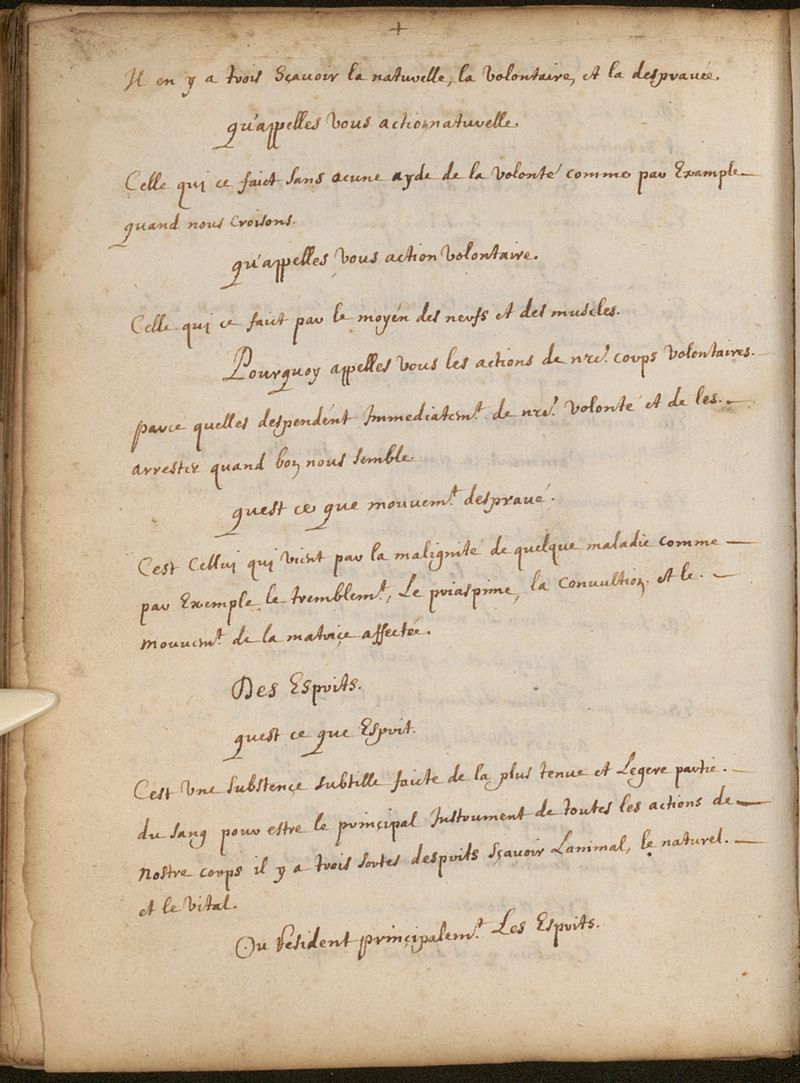 +
Il en y a trois Sçavoir la naturelle, la volontaire, et la desprauée.
qu'appelles vous action naturelle.
Celle qui ce faict sans acune ayde de la volonté comme par Example
quand nous Croisons.
qu'appelles vous action volontaire.
Celle qui ce faict par le moyén des nerfs et des muscles.
Pourquoy appelles vous les actions de nre. corps volontaires.
parce quelles despendént Immediatemt. de nre. volonté et de les.
arrester quand bon nous semble
quest ce que mouuemt. despraué.
Cest Celluy qui vient par la malignité de quelque maladie comme
par Exemple le tremblemt., Le priaspime, la Conuultion. et le.
mouuemt. de la matriçe affectée.
Des Esprits.
quest ce que Esprit.
Cest Vne substençe subtille faicte de la plus tenue et Legere partie.
du sang pour estre le prinçipal Instrument de toutes les actions de
Nostre corps il y a trois sortes desprits sçavoir Lanimal, le naturel.
et le vital.
Ou Résident prinçipalemt. Les Esprits.